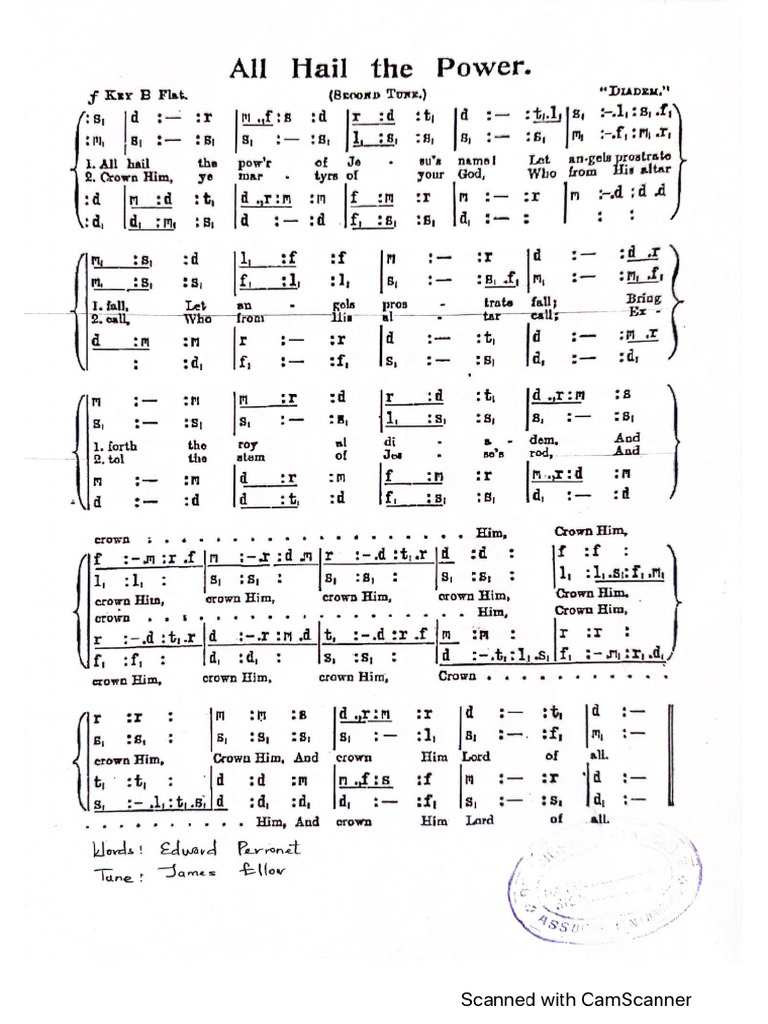 All Hail the Power.
f KEY B FLAT. (SECOND TUNE.) "DIADEM."
:s₁ | d :— :r | m .,f :s :d | r :d :t₁ | d :— :t₁.l₁ | s₁ :-.l₁ :s₁.f₁
:m₁ | s₁ :— :s₁ | s₁ :— :s₁ | l₁ :s₁ :s₁ | s₁ :— :s₁ | m₁ :-.f₁ :m₁.r₁
1. All hail the pow'r of Je - su's name! Let an-gels prostrate
2. Crown Him, ye mar - tyrs of your God, Who from His altar
:d | m :d :t₁ | d .,r :m :m | f :m :r | m :— :r | m :-.d :d .d
:d₁ | d₁ :m₁ :s₁ | d :— :d | f₁ :s₁ :s₁ | d₁ :— : | : :
m₁ :s₁ :d | l₁ :f :f | m :— :r | d :— :d .r
m₁ :s₁ :s₁ | f₁ :l₁ :l₁ | s₁ :— :s₁.f₁ | m₁ :— :m₁.f₁
1. fall, Let an - gels pros - trate fall; Bring
2. call, Who from His al - tar call; Ex -
d :m :m | r :— :r | d :— :t₁ | d :— :m .r
: :d₁ | f₁ :— :f₁ | s₁ :— :s₁ | d₁ :— :d₁
m :— :m | m :r :d | r :d :t₁ | d .,r :m :s
s₁ :— :s₁ | s₁ :— :s₁ | l₁ :s₁ :s₁ | s₁ :— :s₁
1. forth the roy al di - a - dem, And
2. tol the stem of Jes - se's rod, And
m :— :m | d :r :m | f :m :r | m .,r :d :m
d :— :d | d :t₁ :d | f₁ :s₁ :s₁ | d₁ :— :d
crown . . . . . . . . . . . . . . . . . . Him, Crown Him,
f :-.m :r .f | m :-.r :d .m | r :-.d :t₁.r | d :d : | f :f :
l₁ :l₁ : | s₁ :s₁ : | s₁ :s₁ : | s₁ :s₁ : | l₁ :l₁.s₁ :f₁.m₁
crown Him, crown Him, crown Him, crown Him, Crown Him.
crown . . . . . . . . . . . . . . . . . . Him, Crown Him,
r :-.d :t₁.r | d :-.r :m .d | t₁ :-.d :r .f | m :m : | r :r :
f₁ :f₁ : | d₁ :d₁ : | s₁ :s₁ : | d :-.t₁ :l₁.s₁ | f₁ :-.m₁ :r₁.d₁
crown Him, crown Him, crown Him, Crown . . . . . . . . . . .
r :r : | m :m :s | d .,r :m :r | d :— :t₁ | d :—
s₁ :s₁ : | s₁ :s₁ :s₁ | s₁ :— :l₁ | s₁ :— :f₁ | m₁ :—
crown Him, Crown Him, And crown Him Lord of all.
t₁ :t₁ : | d :d :m | m .,f :s :f | m :— :r | d :—
s₁ :-.l₁ :t₁.s₁ | d :d₁ :d₁ | d₁ :— :f₁ | s₁ :— :s₁ | d₁ :—
. . . . . . . . . . Him, And crown Him Lord of all.
Words: Edward Perronet
Tune: James Ellor
ASSOC
Scanned with CamScanner